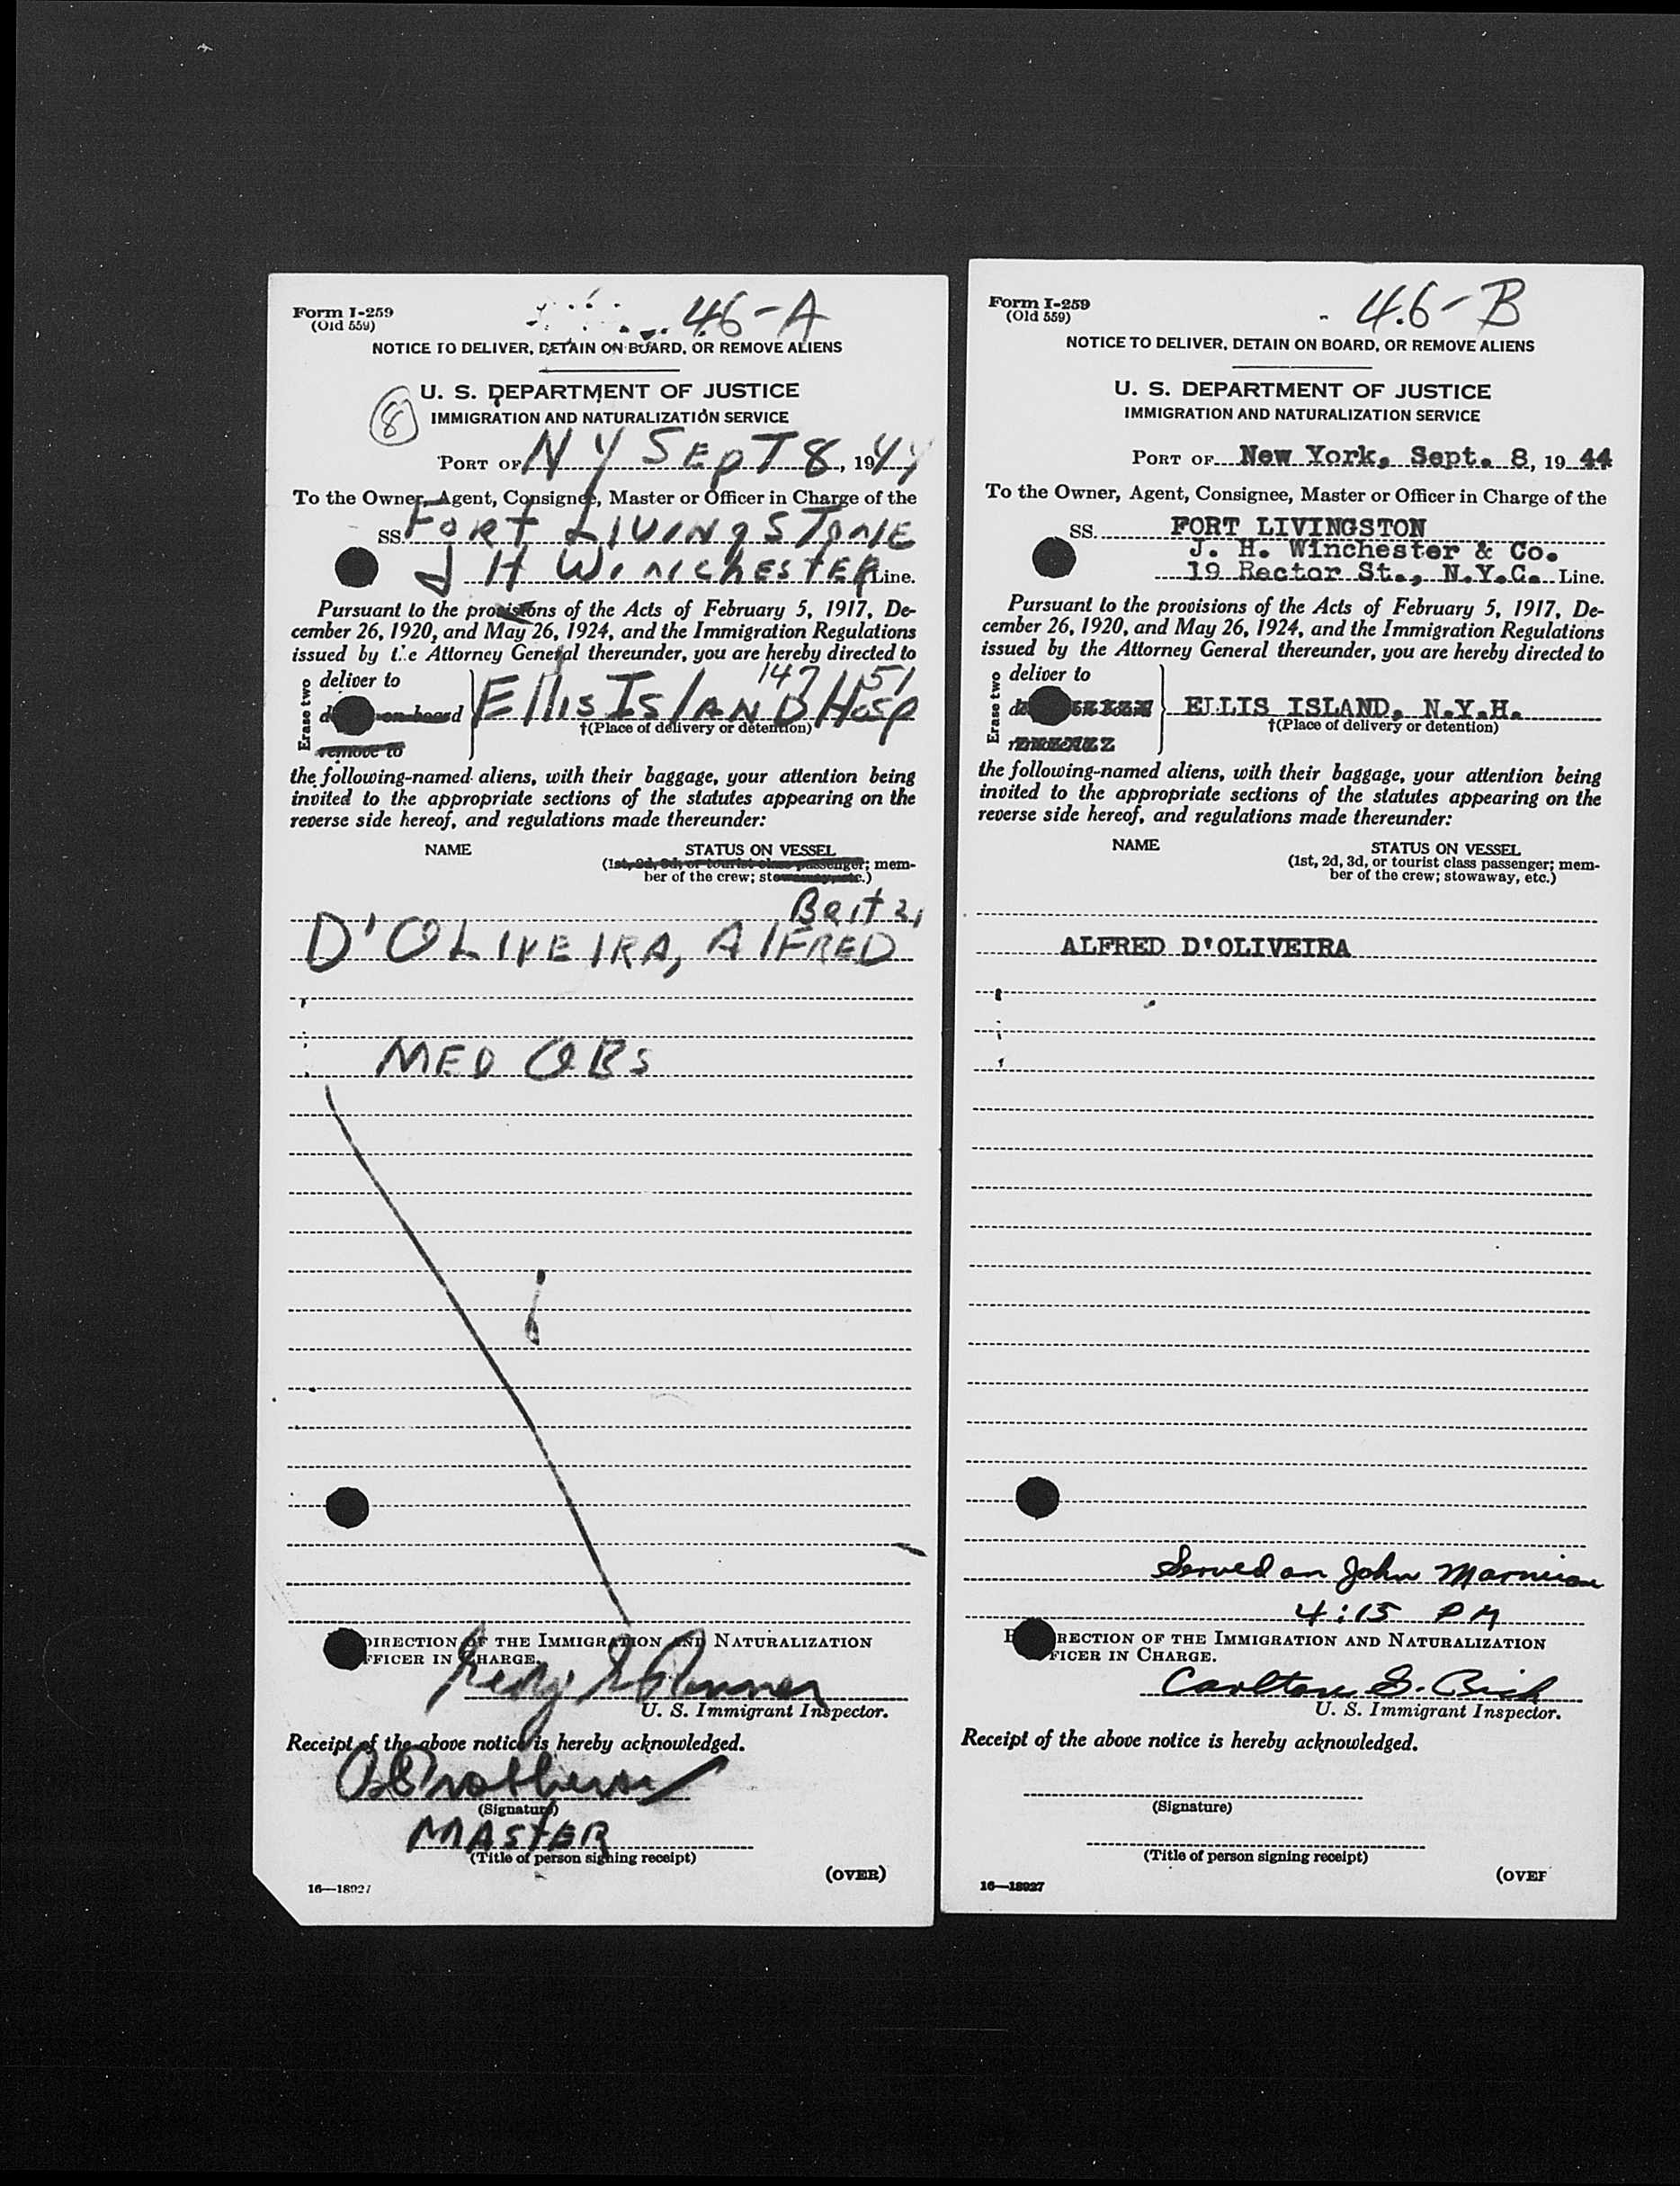 Form I-259
(Old 559)
46-A
NOTICE TO DELIVER, DETAIN ON BOARD, OR REMOVE ALIENS
U. S. DEPARTMENT OF JUSTICE
8
IMMIGRATION AND NATURALIZATION SERVICE
PORT OF NY SEPT 8, 1944
To the Owner, Agent, Consignee, Master or Officer in Charge of the
SS. FORT LIVINGSTONE
J H WINCHESTER Line.
Pursuant to the provisions of the Acts of February 5, 1917, De-
cember 26, 1920, and May 26, 1924, and the Immigration Regulations
issued by the Attorney General thereunder, you are hereby directed to
147 151
Erase two
deliver to
on board
remove to
Ellis ISLAND Hosp
†(Place of delivery or detention)
the following-named aliens, with their baggage, your attention being
invited to the appropriate sections of the statutes appearing on the
reverse side hereof, and regulations made thereunder:
NAME
STATUS ON VESSEL
(1st, 2d, 3d, or tourist class passenger; mem-
ber of the crew; stowaway, etc.)
D'OLIVEIRA, AlFRED
MED OBS
DIRECTION OF THE IMMIGRATION AND NATURALIZATION
FFICER IN CHARGE.
U. S. Immigrant Inspector.
Receipt of the above notice is hereby acknowledged.
(Signature)
MASTER
(Title of person signing receipt)
(OVER)
16—18927
Form I-259
(Old 559)
46-B
NOTICE TO DELIVER, DETAIN ON BOARD, OR REMOVE ALIENS
U. S. DEPARTMENT OF JUSTICE
IMMIGRATION AND NATURALIZATION SERVICE
PORT OF New York, Sept. 8, 19 44
To the Owner, Agent, Consignee, Master or Officer in Charge of the
SS. FORT LIVINGSTON
J. H. Winchester & Co.
19 Rector St., N.Y.C. Line.
Pursuant to the provisions of the Acts of February 5, 1917, De-
cember 26, 1920, and May 26, 1924, and the Immigration Regulations
issued by the Attorney General thereunder, you are hereby directed to
Erase two
deliver to
ELLIS ISLAND, N.Y.H.
†(Place of delivery or detention)
the following-named aliens, with their baggage, your attention being
invited to the appropriate sections of the statutes appearing on the
reverse side hereof, and regulations made thereunder:
NAME
STATUS ON VESSEL
(1st, 2d, 3d, or tourist class passenger; mem-
ber of the crew; stowaway, etc.)
ALFRED D'OLIVEIRA
Served on John
4:15 PM
RECTION OF THE IMMIGRATION AND NATURALIZATION
FICER IN CHARGE.
Carlton G.
U. S. Immigrant Inspector.
Receipt of the above notice is hereby acknowledged.
(Signature)
(Title of person signing receipt)
(OVER
16—18927